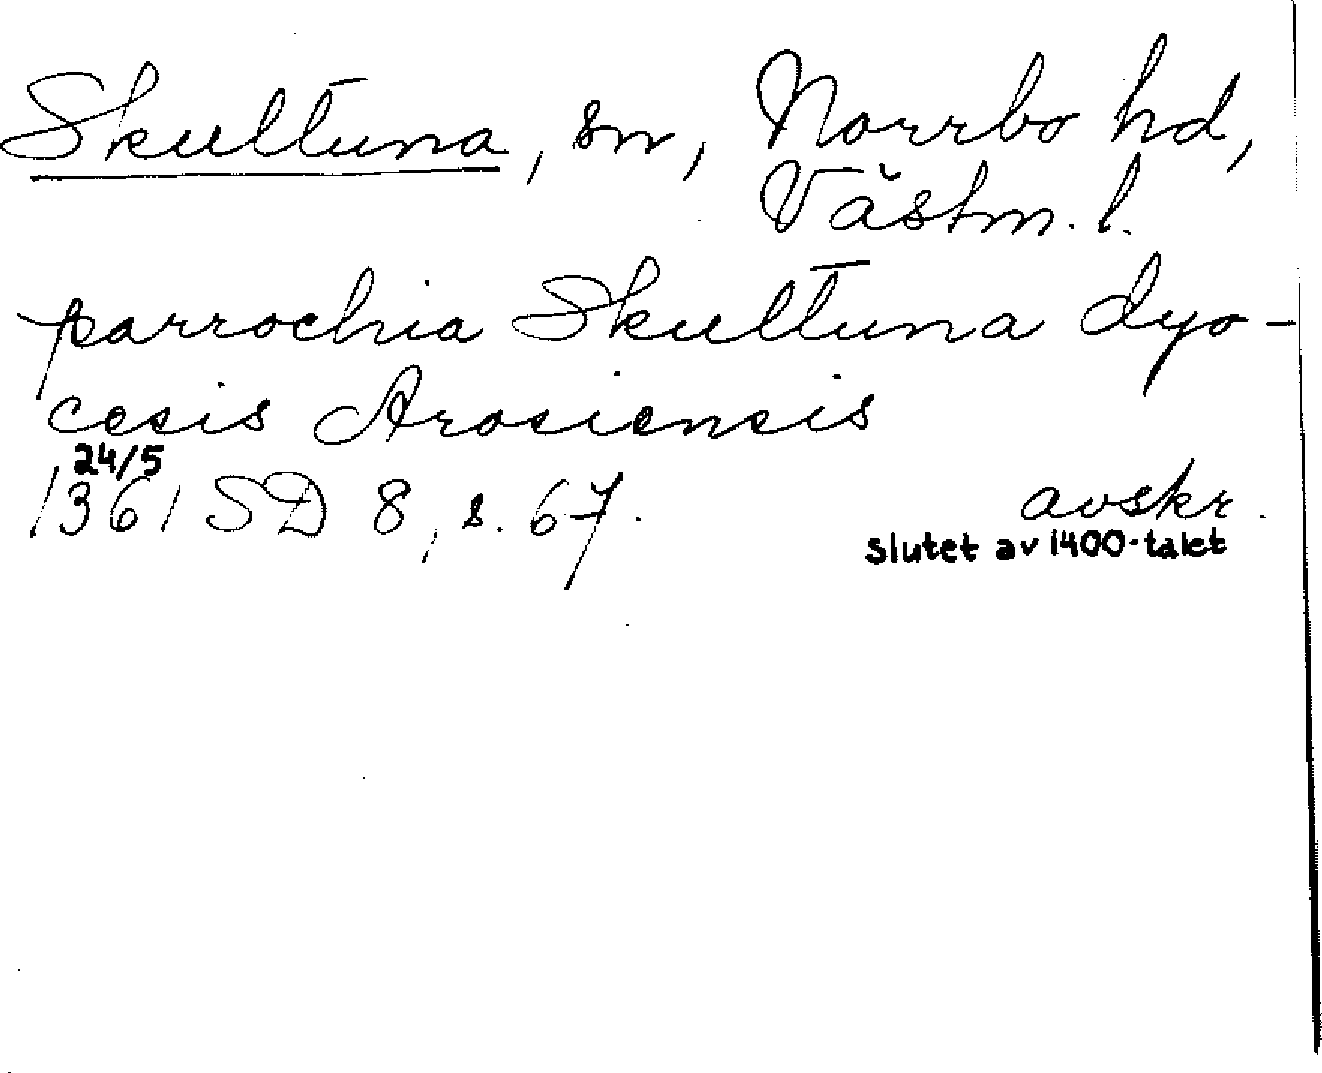 Skultuna, sn, Norrbo hd,
Västm. l.
parrochia Skultuna dyo-
cesis Arosiensis
24/5
1361 SD 8, s. 67. avskr.
slutet av 1400-talet